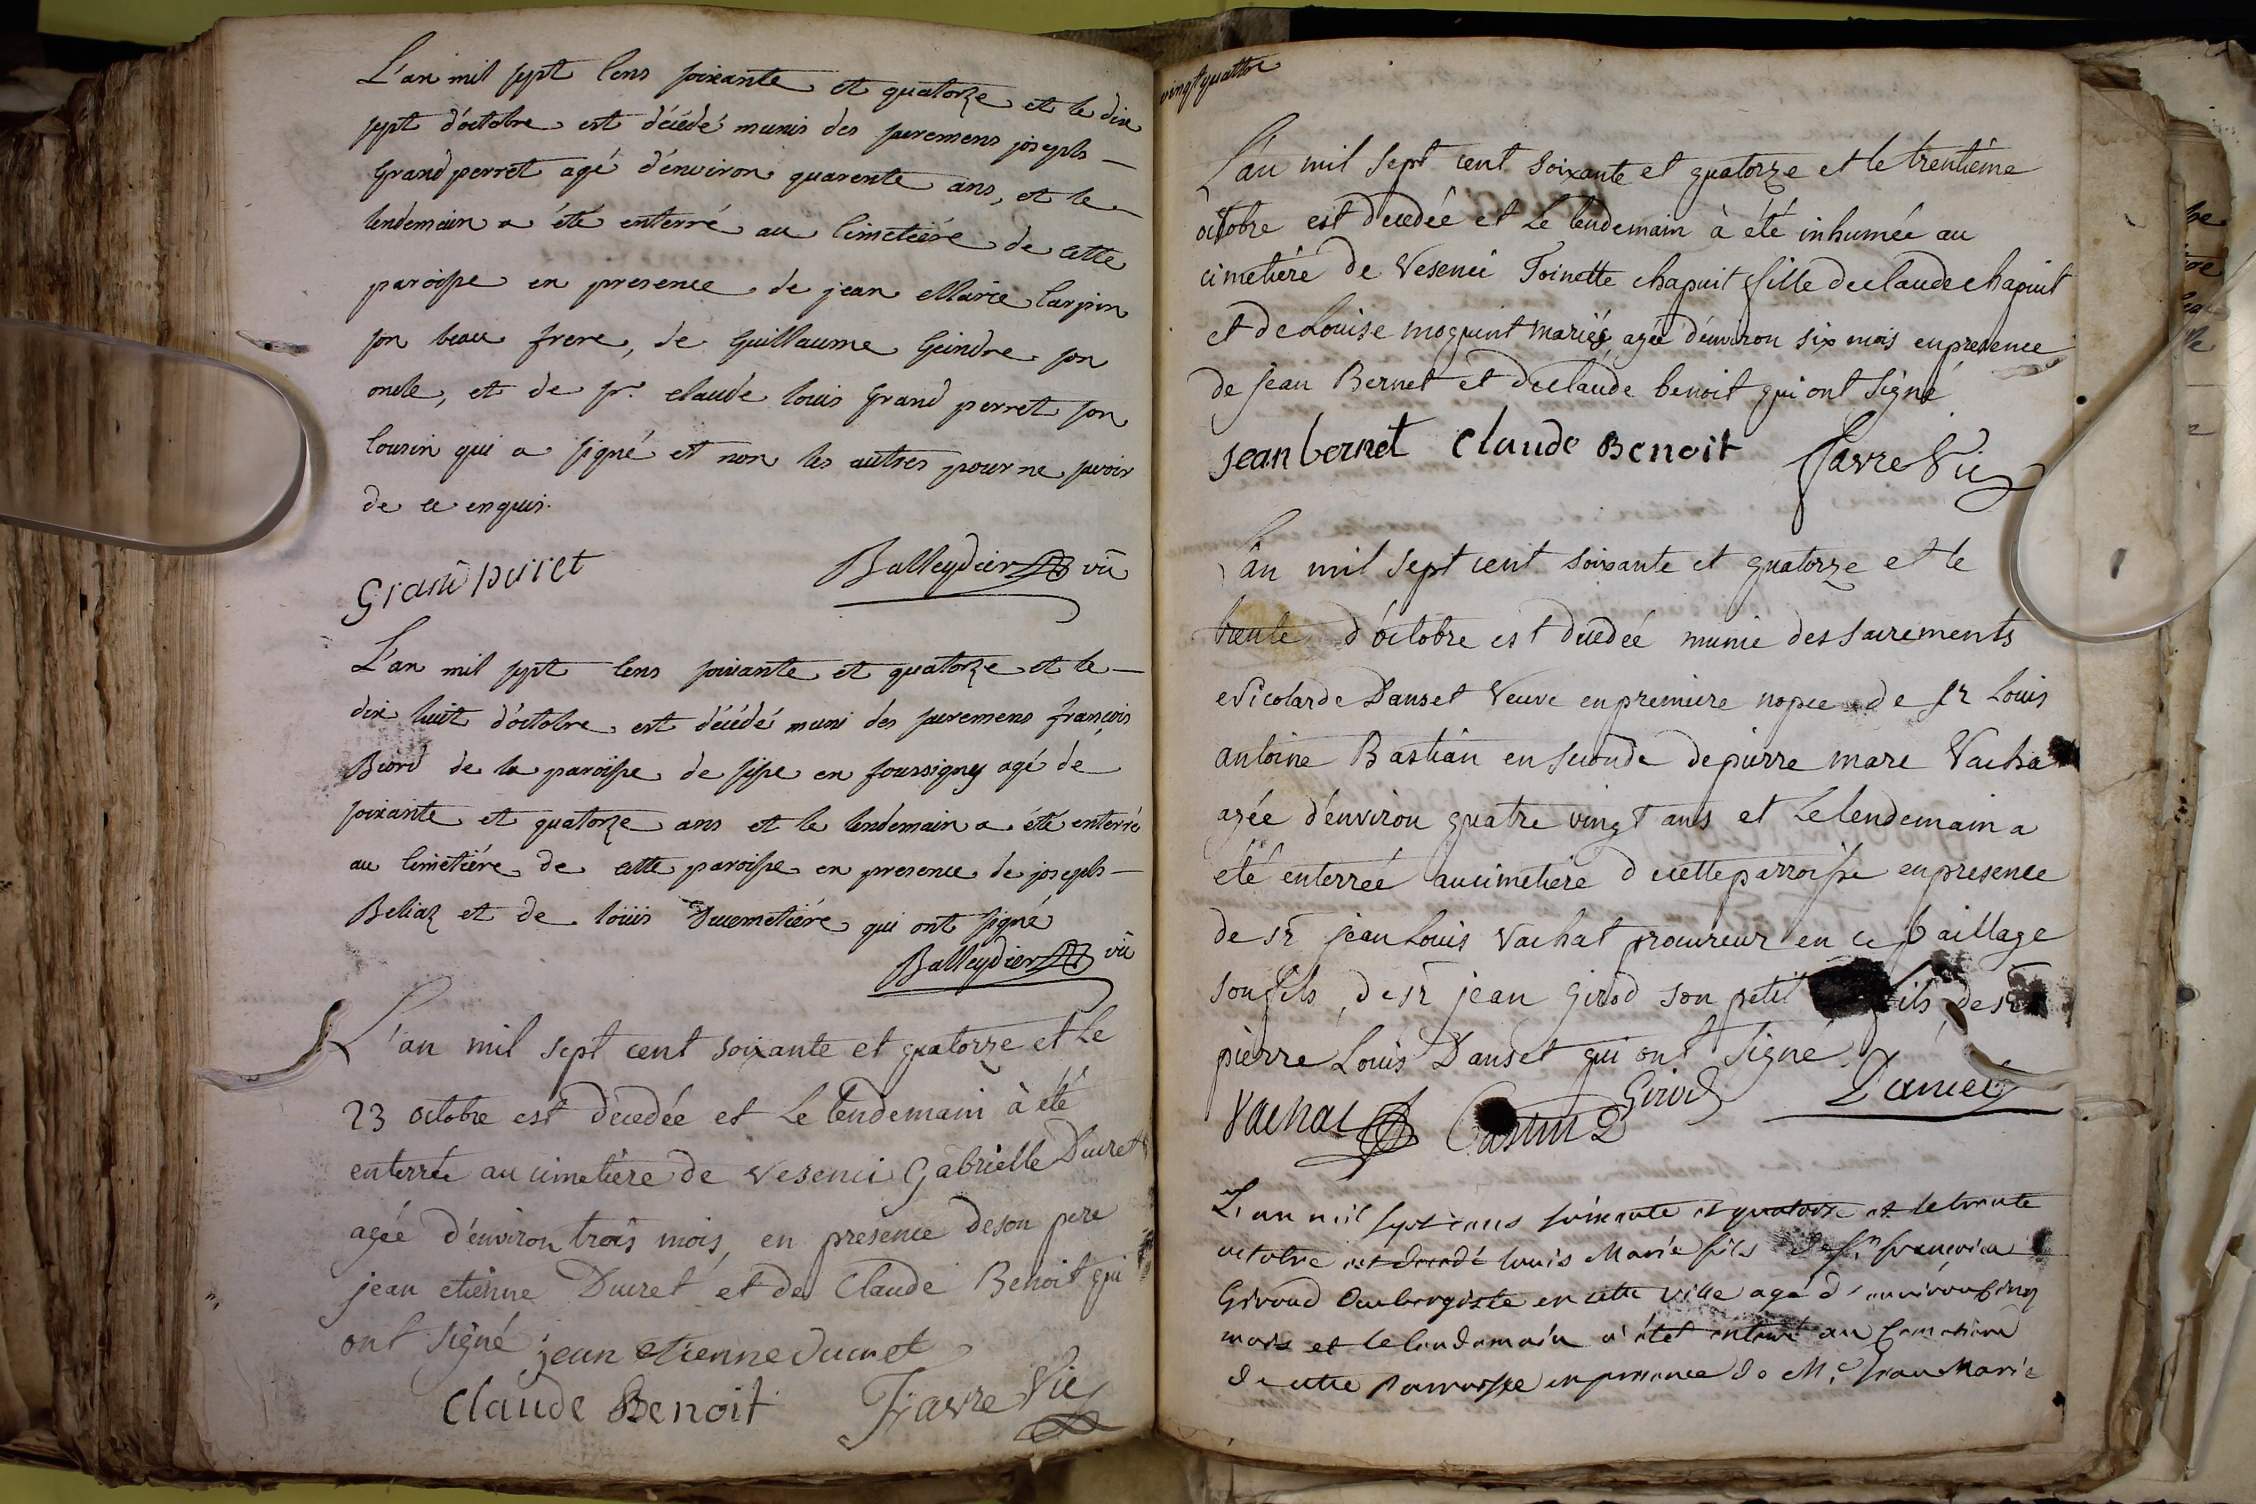 L'an mil sept cens soixante et quatorze et le dix
sept d'octobre est décédé munis des sacremens joseph
Grandperret agé d'environ quarente ans, et le
lendemain a été enterré au cimetiére de cette
paroisse en presence de jean Marie Carpin
son beau frere, de Guillaume Geindre son
oncle, et de sr. claude louis Grand perret son
cousin qui a signé et non les autres pour ne savoir
de ce enquis.
Grand perret Balleydier vic
L'an mil sept cens soixante et quatorze et le
dix huit d'octobre est décédé muni des sacremens françois
Biord de la paroisse de sise en foussigny agé de
soixante et quatorze ans et le lendemain a été enterré
au cimetiére de cette paroisse en presence de joseph
Beliaz et de loüis Ducimetiére qui ont signé
Balleydier vic
L'an mil sept cent soixante et quatorze et le
23 octobre est décedée et le lendemain à été
enterrée au cimetiére de Vesenci Gabrielle Ducret
agée d'énviron trois mois, en présence de son pere
jean etiénne Ducret et de Claude Benoit qui
ont signé jean etienne ducret
Claude Benoit Favre Vic
vingt quattre
L'an mil sept cent soixante et quatorze et le trentiéme
octobre est decedée et le lendemain à été inhumée au
cimetiére de Vesenci Toinette chapuit fille de claude chapuit
et de Louise moquint mariés, agée d'énviron six mois en presence
de jean Bernet et de claude benoit qui ont signé
jean bernet Claude Benoit Favre Vic
L'an mil sept cent soixante et quatorze et le
trente d'octobre est decedée munie des sacrements
Nicolarde Danset Veuve en premiere nopce de sr Louis
antoine Bastian en seconde de pierre marc Vacha
agée d'énviron quatre vingt ans et le lendemain a
été enterreé au cimetiere de cette parroisse en presence
de sr jean Louis Vachat procureur en ce baillage
son fils, de sr jean girod son petit fils, de sr
pierre Louis Danset qui ont signé
Vachat Girod Danset
L'an mil sept cens soixante et quatorze et le trente
octobre est decedé louis Marie fils de sr. francois
Giroud Aubergiste en cette ville agé d'environ cinq
mois et le lendemain a étét enterré au cemetiere
de cette Parroisse en presence de Me. jean Marie